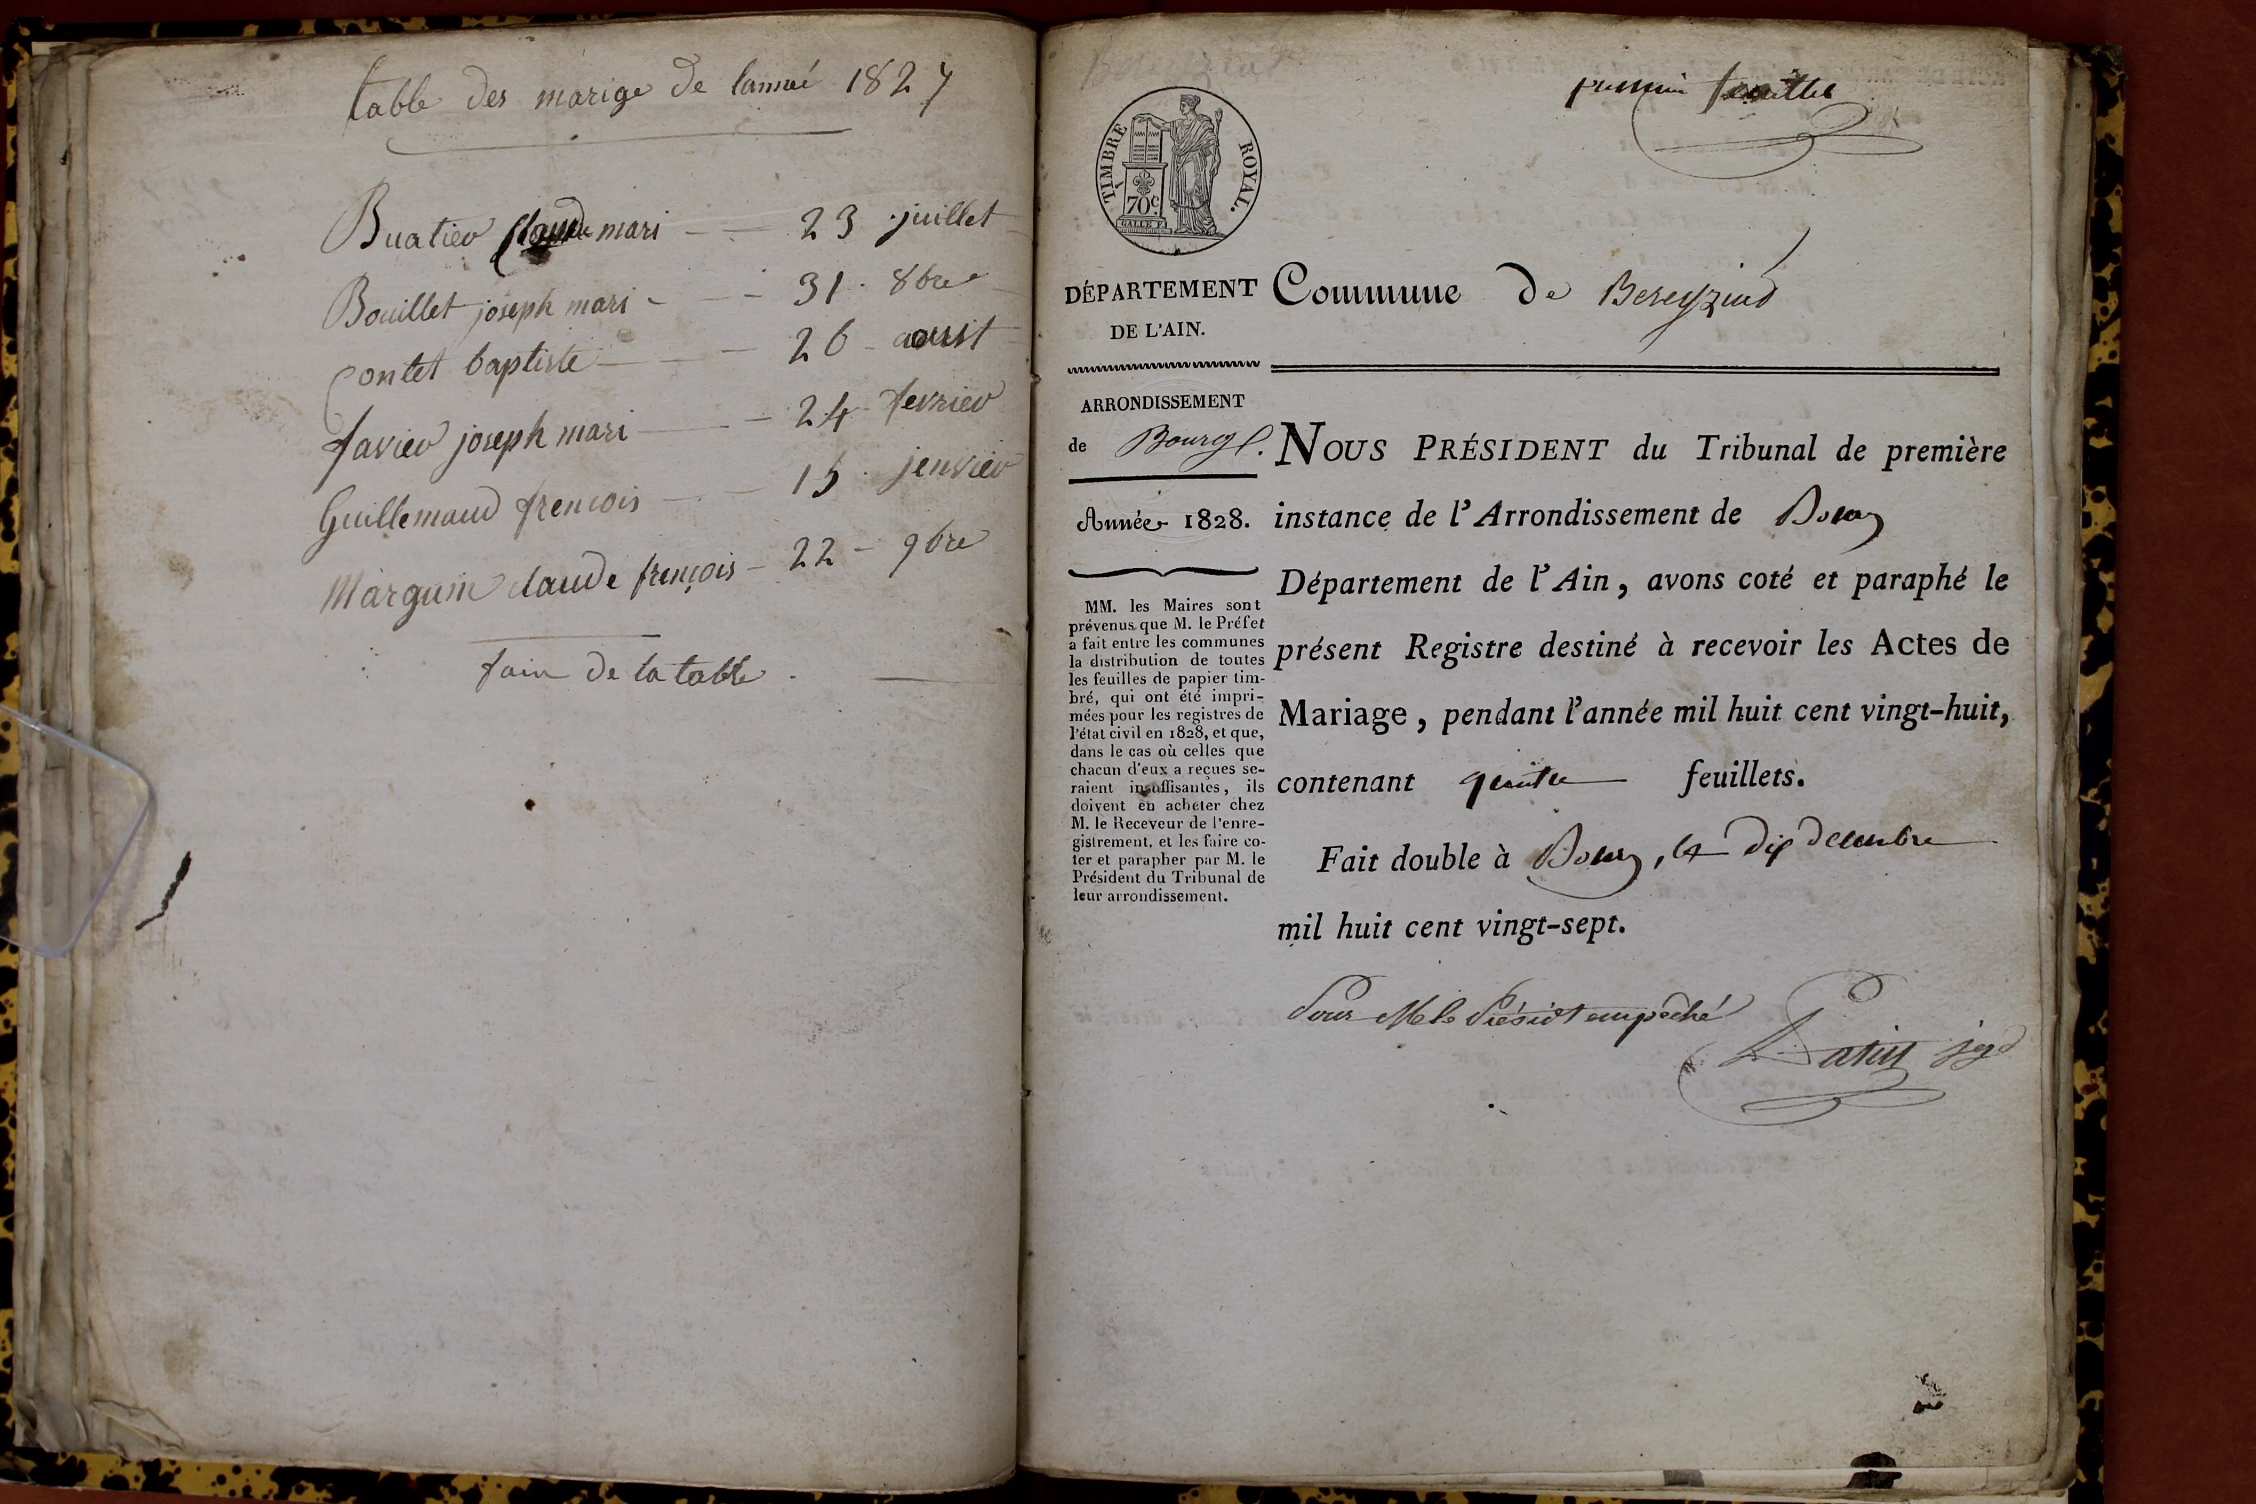 table des marige de lannué 1827
Buatiev Claude mari — 23 juillet
Bouillet joseph mari — 31 8bre
Contet baptiste — 26 aoust
faviev joseph mari — 24 fevriev
Guillemaud frencois — 15 jenviev
Marguin claude françois — 22 — 9bre
fain de la table
premier feuillet
TIMBRE ROYAL.
70c
DÉPARTEMENT
DE L'AIN.
Commune de Bereyziad
ARRONDISSEMENT
de Bourg
Année 1828.
MM. les Maires sont
prévenus que M. le Préfet
a fait entre les communes
la distribution de toutes
les feuilles de papier tim-
bré, qui ont été impri-
mées pour les registres de
l'état civil en 1828, et que,
dans le cas où celles que
chacun d'eux a reçues se-
raient insuffisantes, ils
doivent en acheter chez
M. le Receveur de l'enre-
gistrement, et les faire co-
ter et parapher par M. le
Président du Tribunal de
leur arrondissement.
NOUS PRÉSIDENT du Tribunal de première
instance de l'Arrondissement de Bourg
Département de l'Ain, avons coté et paraphé le
présent Registre destiné à recevoir les Actes de
Mariage, pendant l'année mil huit cent vingt-huit,
contenant quatre feuillets.
Fait double à Bourg, le dix decembre
mil huit cent vingt-sept.
Pour M le Présidt empêché